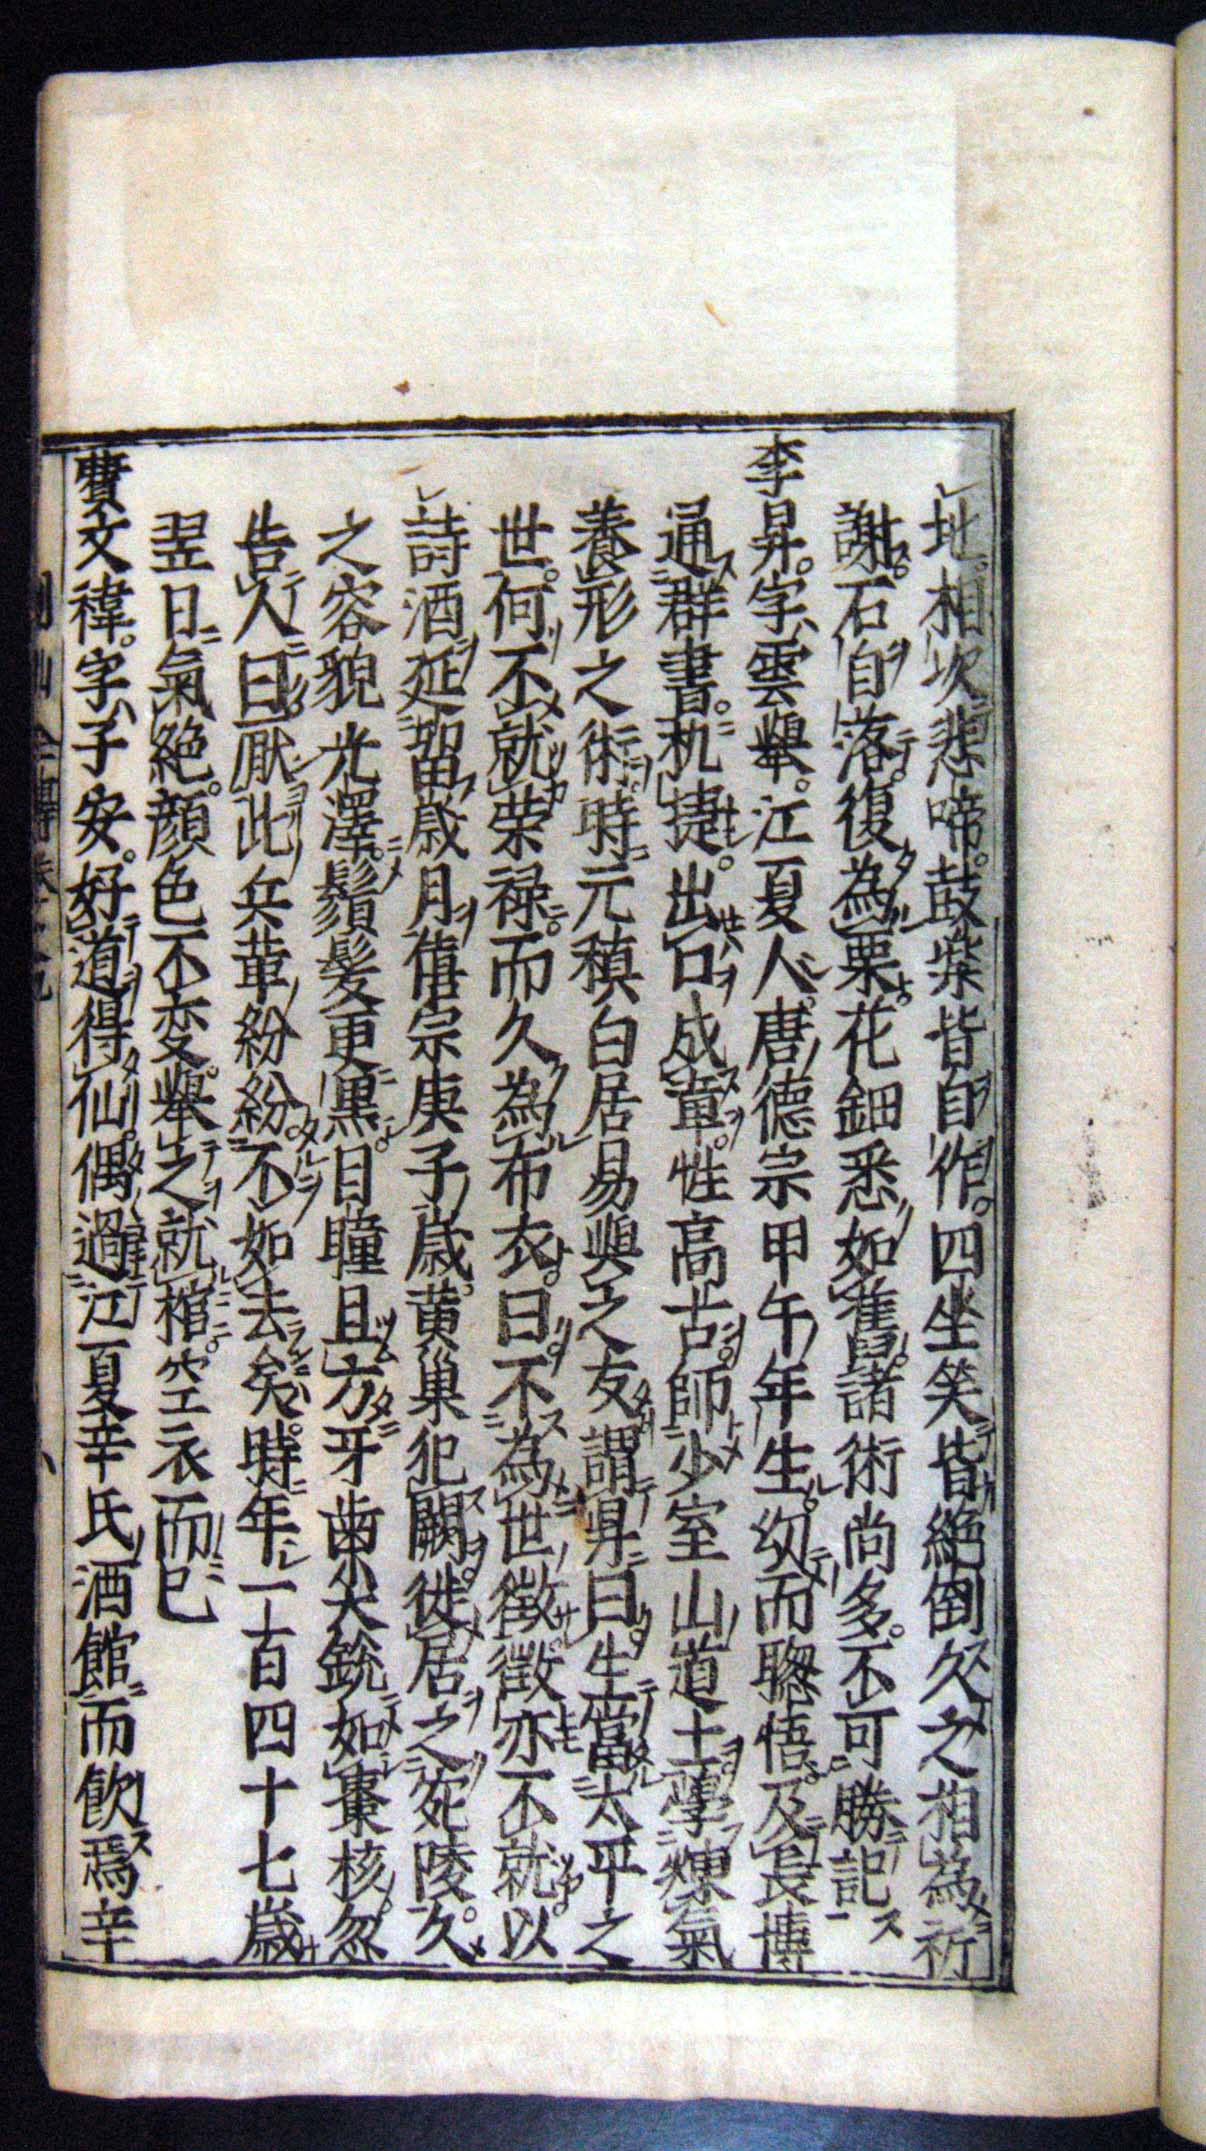 地。相次悲啼。鼓柴皆自作。四坐笑皆絶倒久之相為祈
謝。石自落。復為栗。花鈿悉如舊。諸術尚多。不可勝記
李昇。字雲擧。江夏人。唐德宗甲午年生。幼而聰悟。及長博
通群書。机捷。出口成章。性高古。師少室山道士。學煉氣
養形之術。時元稹白居易與之友。謂昇曰。生當太平之
世。何不就榮禄。而久為布衣。曰。不為世徴。徴亦不就。以
詩酒延留歳月。僖宗庚子歳。黄巢犯闕。徙居之宛陵。久
之容貌光澤。鬚髪更黒。目瞳且方。牙歯尖鋭如棗核。忽
告人曰。厭此兵革紛紛。不如去矣。時年一百四十七歳
翌日氣絶。顔色不変。擧之就棺。空衣而已
費文褘。字子安。好道得仙。偶過江夏辛氏酒館而飲焉辛